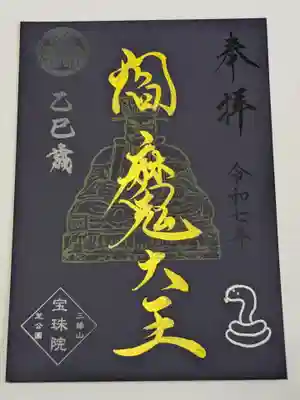 奉拝
令和七年
閻魔大王
乙巳歳
三縁山
宝珠院
芝公園